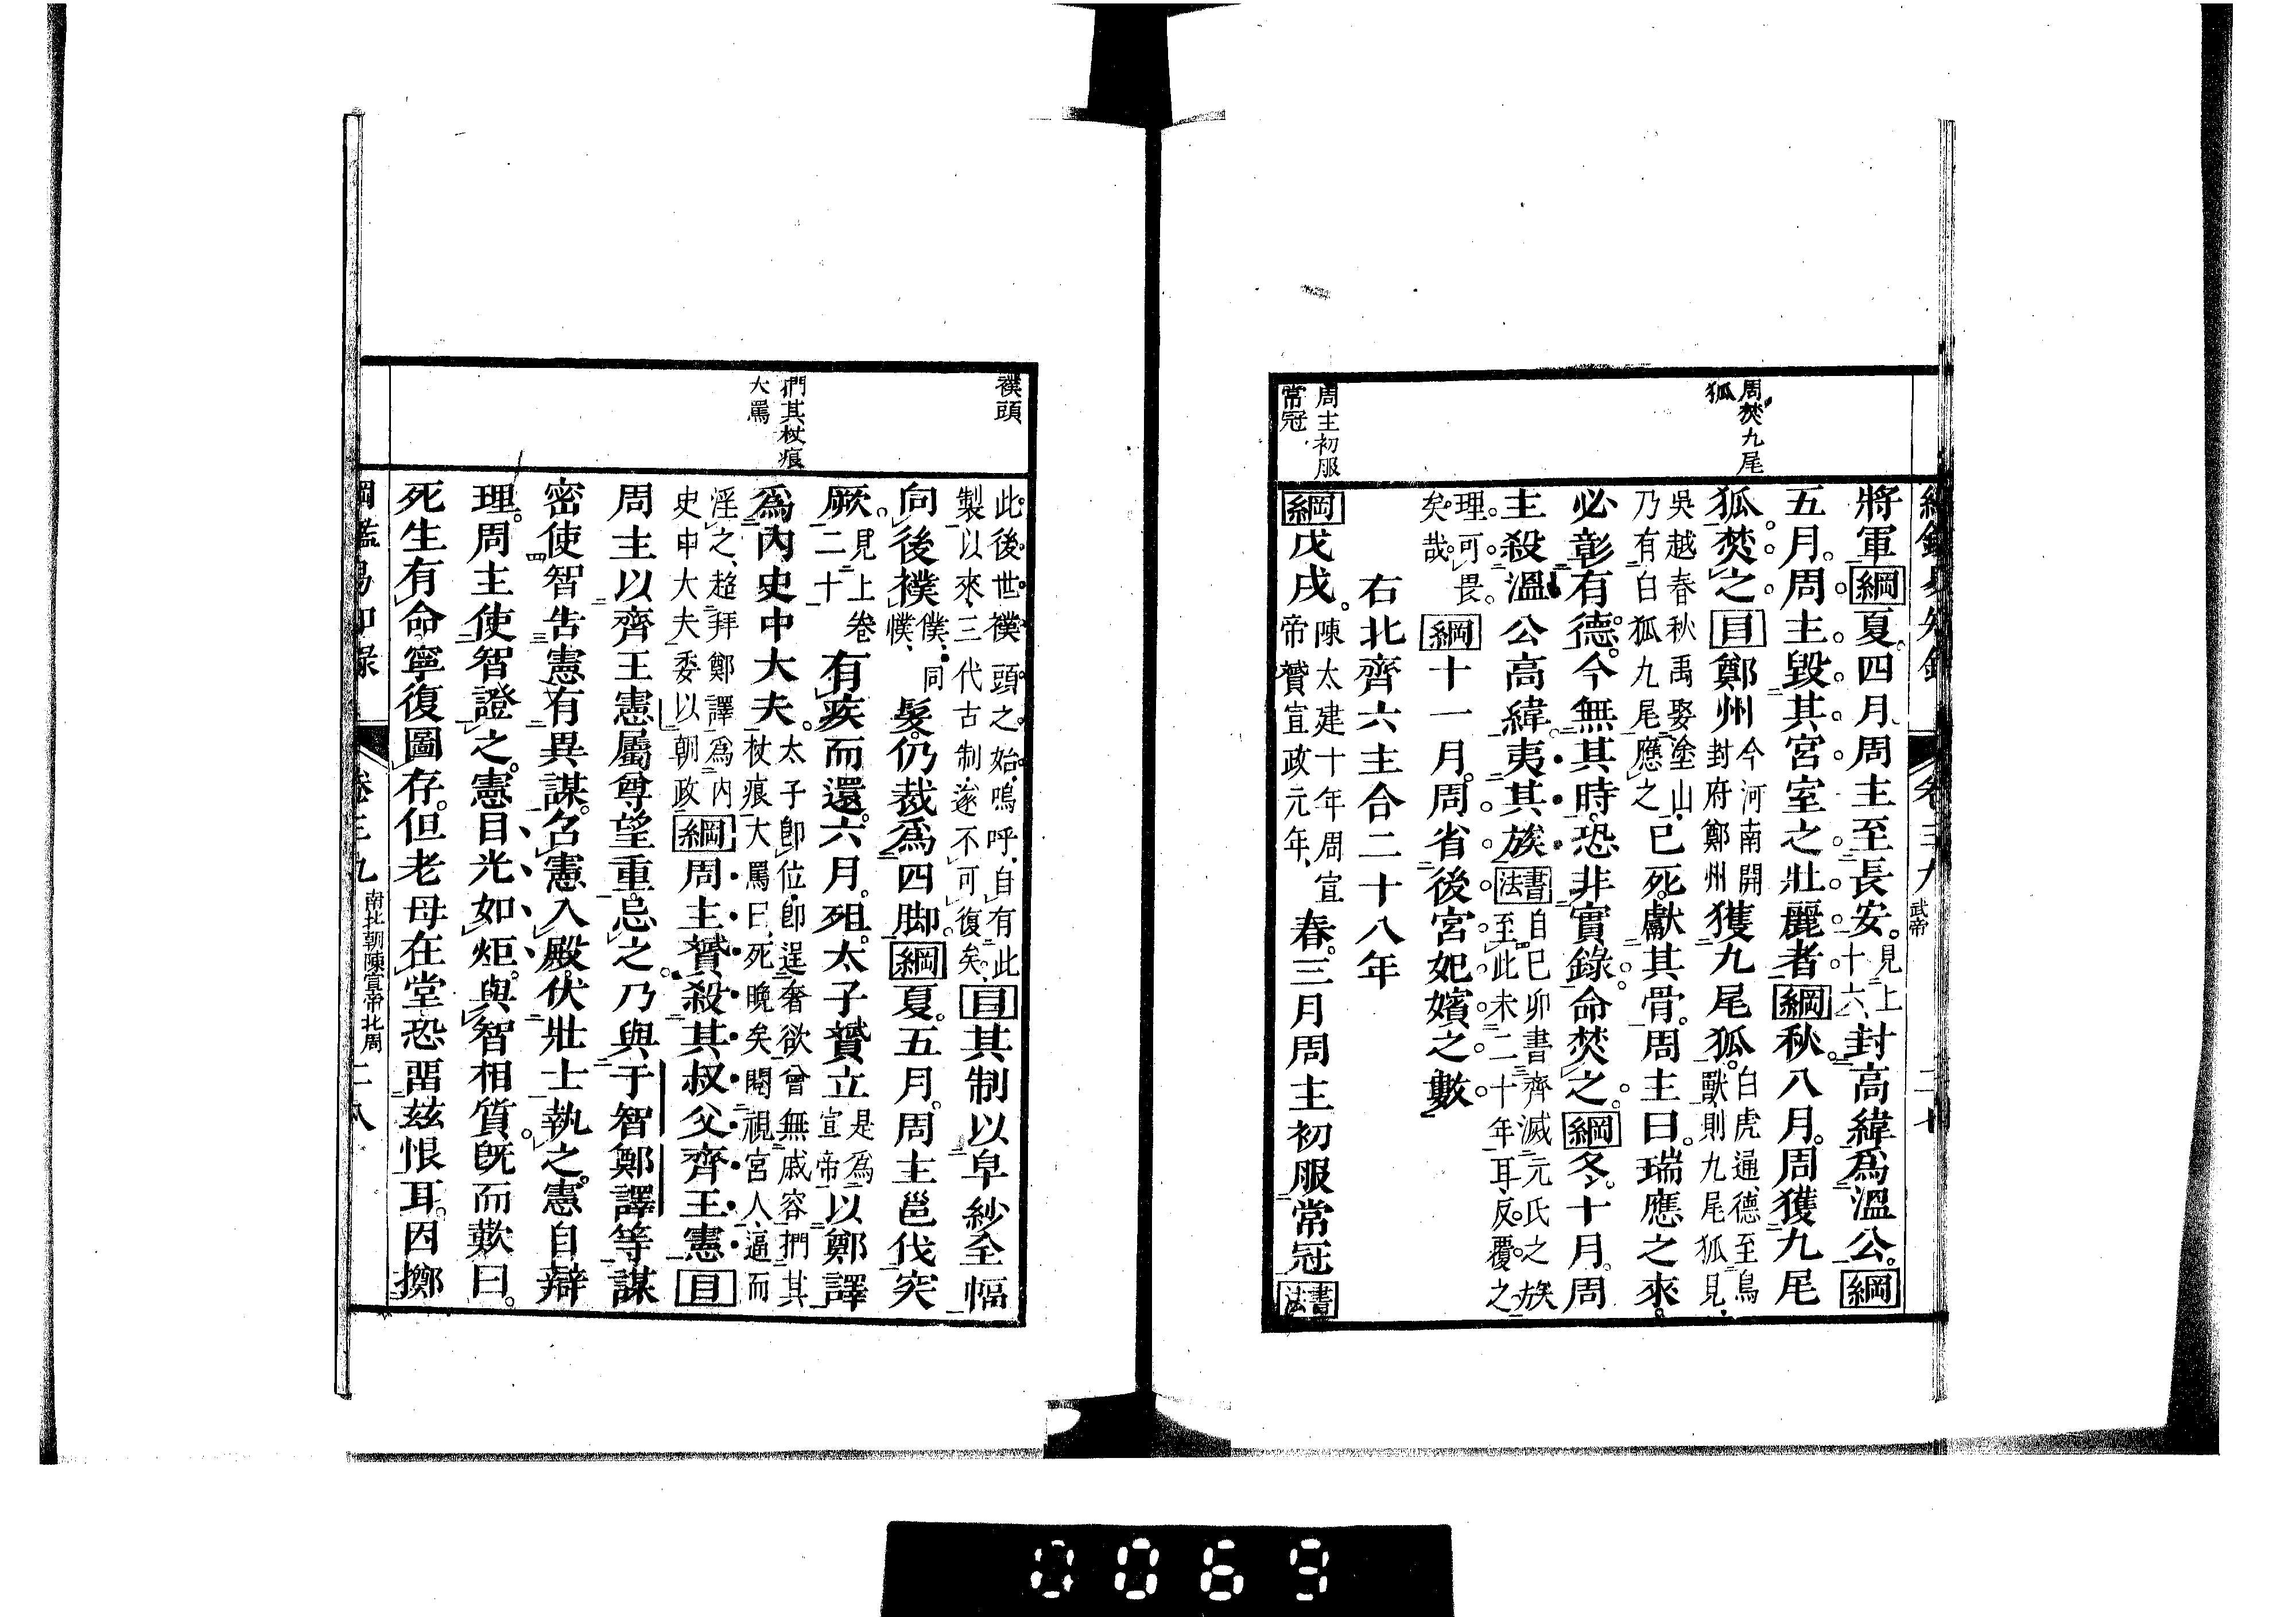 周焚九尾
狐
周主初服
常冠
將軍綱夏四月周主至長安見上十六封高緯爲溫公綱
五月周主毀其宮室之壯麗者綱秋八月周獲九尾
狐焚之目鄭州今河南開封府鄭州獲九尾狐白虎通德至鳥獸則九尾狐見
吳越春秋禹娶塗山乃有白狐九尾應之已死獻其骨周主曰瑞應之來
必彰有德今無其時恐非實錄命焚之綱冬十月周
主殺溫公高緯夷其族書法自己卯書齊滅元氏之族至此未二十年耳反覆之
理可畏矣哉綱十一月周省後宮妃嬪之數
右北齊六主合二十八年
綱戊戌陳太建十年周宣帝贇宣政元年春三月周主初服常冠書法
卷三九
武帝
襆頭
捫其杖痕
大罵
此後世襆頭之始嗚呼自有此製以來三代古制遂不可復矣目其制以皁紗全幅
向後襆僕同幞髮仍裁爲四脚綱夏五月周主邕伐突
厥見上卷二十有疾而還六月殂太子贇立是爲宣帝以鄭譯
爲內史中大夫太子卽位卽逞奢欲曾無戚容捫其杖痕大罵曰死晚矣閱視宮人逼而
淫之超拜鄭譯爲內史中大夫委以朝政綱周主贇殺其叔父齊王憲目
周主以齊王憲屬尊望重忌之乃與于智鄭譯等謀
密使智告憲有異謀召憲入殿伏壯士執之憲自辯
理周主使智證之憲目光如炬與智相質旣而歎曰
死生有命寧復圖存但老母在堂恐畱玆恨耳因擲
綱鑑易知錄
卷三九
南北朝陳宣帝北周
二八
0069